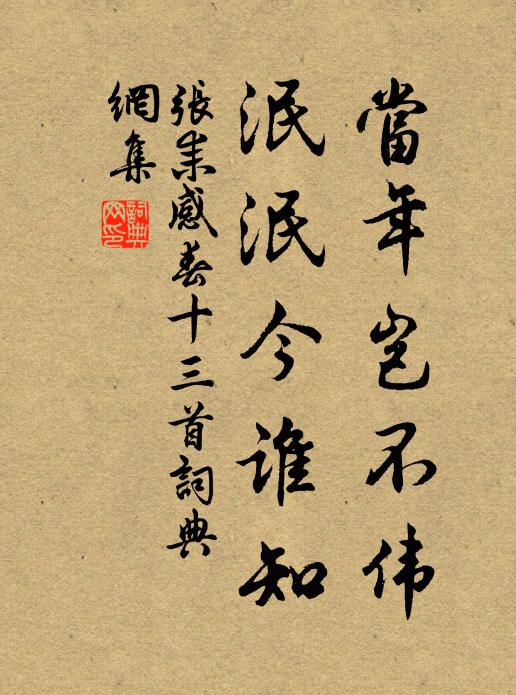 當年岂不伟
泯泯今誰知
張耒感春十三首詞典
網集
詞典
网印